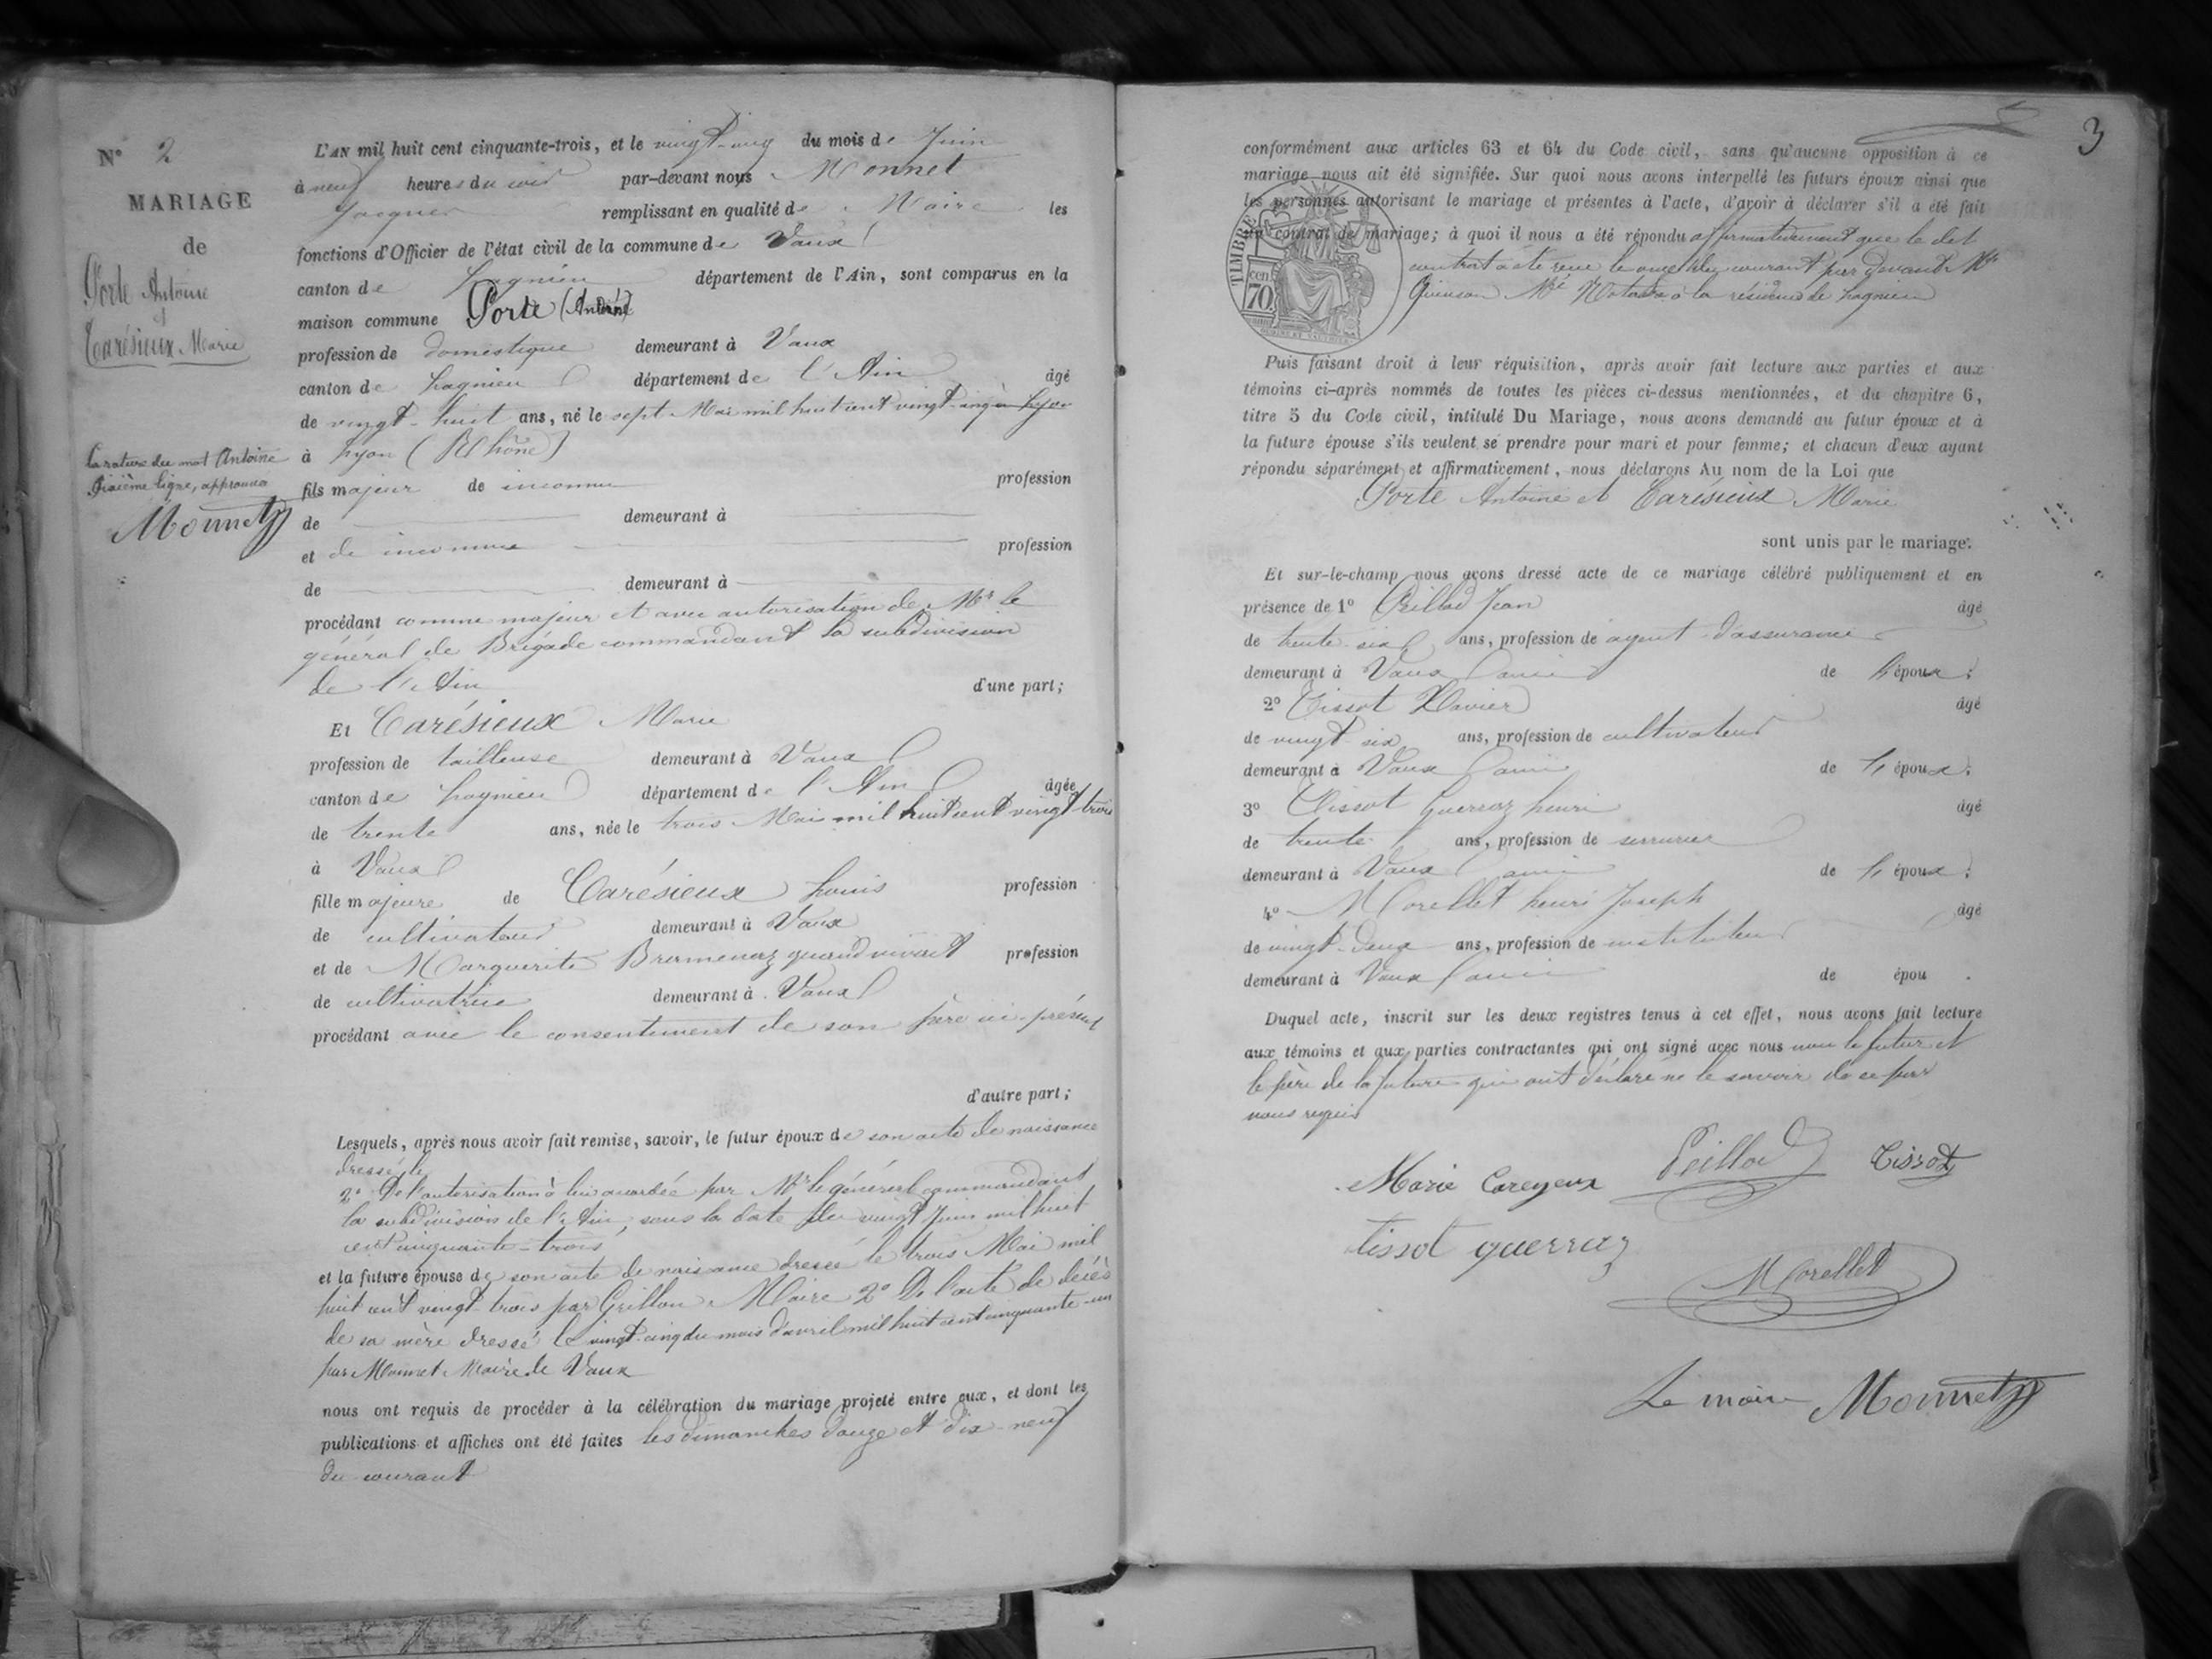 N° 2
MARIAGE
de
Porte Antoine
et
Carésieux Marie
L'AN mil huit cent cinquante-trois, et le vingt-cinq du mois de Juin
à neuf heures du soir par-devant nous Monnet
Jacques remplissant en qualité de Maire les
fonctions d'Officier de l'état civil de la commune de Vaux
canton de Lagnieu département de l'Ain, sont comparus en la
maison commune Porte (Antoine)
profession de domestique demeurant à Vaux
canton de Lagnieu département de l'Ain âgé
de vingt-huit ans, né le sept Mai mil huit cent vingt-cinq à Lyon
à Lyon (Rhône)
La rature du mot Antoine
sixième ligne, approuvée
Monnet
fils majeur de inconnu profession
de demeurant à
et de inconnue profession
de demeurant à
procédant comme majeur et avec autorisation de Mr le
général de Brigade commandant la subdivision
de l'Ain d'une part;
Et Carésieux Marie
profession de tailleuse demeurant à Vaux
canton de Lagnieu département de l'Ain âgée
de trente ans, née le trois Mai mil huit cent vingt-trois
à Vaux
fille majeure de Carésieux Louis profession
de cultivateur demeurant à Vaux
et de Marguerite quand vivait profession
de cultivatrice demeurant à Vaux
procédant avec le consentement de son père ici présent
d'autre part;
Lesquels, après nous avoir fait remise, savoir, le futur époux de son acte de naissance
dressé le
2° De l'autorisation à lui accordée par Mr le général commandant
la subdivision de l'Ain, sous la date du vingt Juin mil huit
cent cinquante-trois
et la future épouse de son acte de naissance dressé le trois Mai mil
huit cent vingt-trois par Grillon Maire 2° De l'acte de décès
de sa mère dressé le vingt-cinq du mois d'avril mil huit cent cinquante-un
par Monnet Maire de Vaux
nous ont requis de procéder à la célébration du mariage projeté entre eux, et dont les
publications et affiches ont été faites les dimanches douze et dix-neuf
du courant
3
conformément aux articles 63 et 64 du Code civil, sans qu'aucune opposition à ce
mariage nous ait été signifiée. Sur quoi nous avons interpellé les futurs époux ainsi que
les personnes autorisant le mariage et présentes à l'acte, d'avoir à déclarer s'il a été fait
un contrat de mariage; à quoi il nous a été répondu affirmativement que le dit
contrat a été reçu le onze du courant par devant Me
Quinson Notaire à la résidence de Lagnieu
TIMBRE
70 cen
Puis faisant droit à leur réquisition, après avoir fait lecture aux parties et aux
témoins ci-après nommés de toutes les pièces ci-dessus mentionnées, et du chapitre 6,
titre 5 du Code civil, intitulé Du Mariage, nous avons demandé au futur époux et à
la future épouse s'ils veulent se prendre pour mari et pour femme; et chacun d'eux ayant
répondu séparément et affirmativement, nous déclarons Au nom de la Loi que
Porte Antoine et Carésieux Marie
sont unis par le mariage.
Et sur-le-champ nous avons dressé acte de ce mariage célébré publiquement et en
présence de 1° Peillod Jean âgé
de trente-six ans, profession de agent d'assurance
demeurant à Vaux ami de l'époux;
2° Tissot Xavier âgé
de vingt-six ans, profession de cultivateur
demeurant à Vaux ami de l'époux;
3° Tissot Guerraz henri âgé
de trente ans, profession de serrurier
demeurant à Vaux ami de l'époux;
4° Morellet henri Joseph âgé
de vingt-deux ans, profession de instituteur
demeurant à Vaux ami de épou .
Duquel acte, inscrit sur les deux registres tenus à cet effet, nous avons fait lecture
aux témoins et aux parties contractantes qui ont signé avec nous non le futur et
le père de la future qui ont déclaré ne le savoir de ce par
nous requis
Marie Careyeux Peillod Tissot
tissot guerraz
Morellet
Le maire Monnet